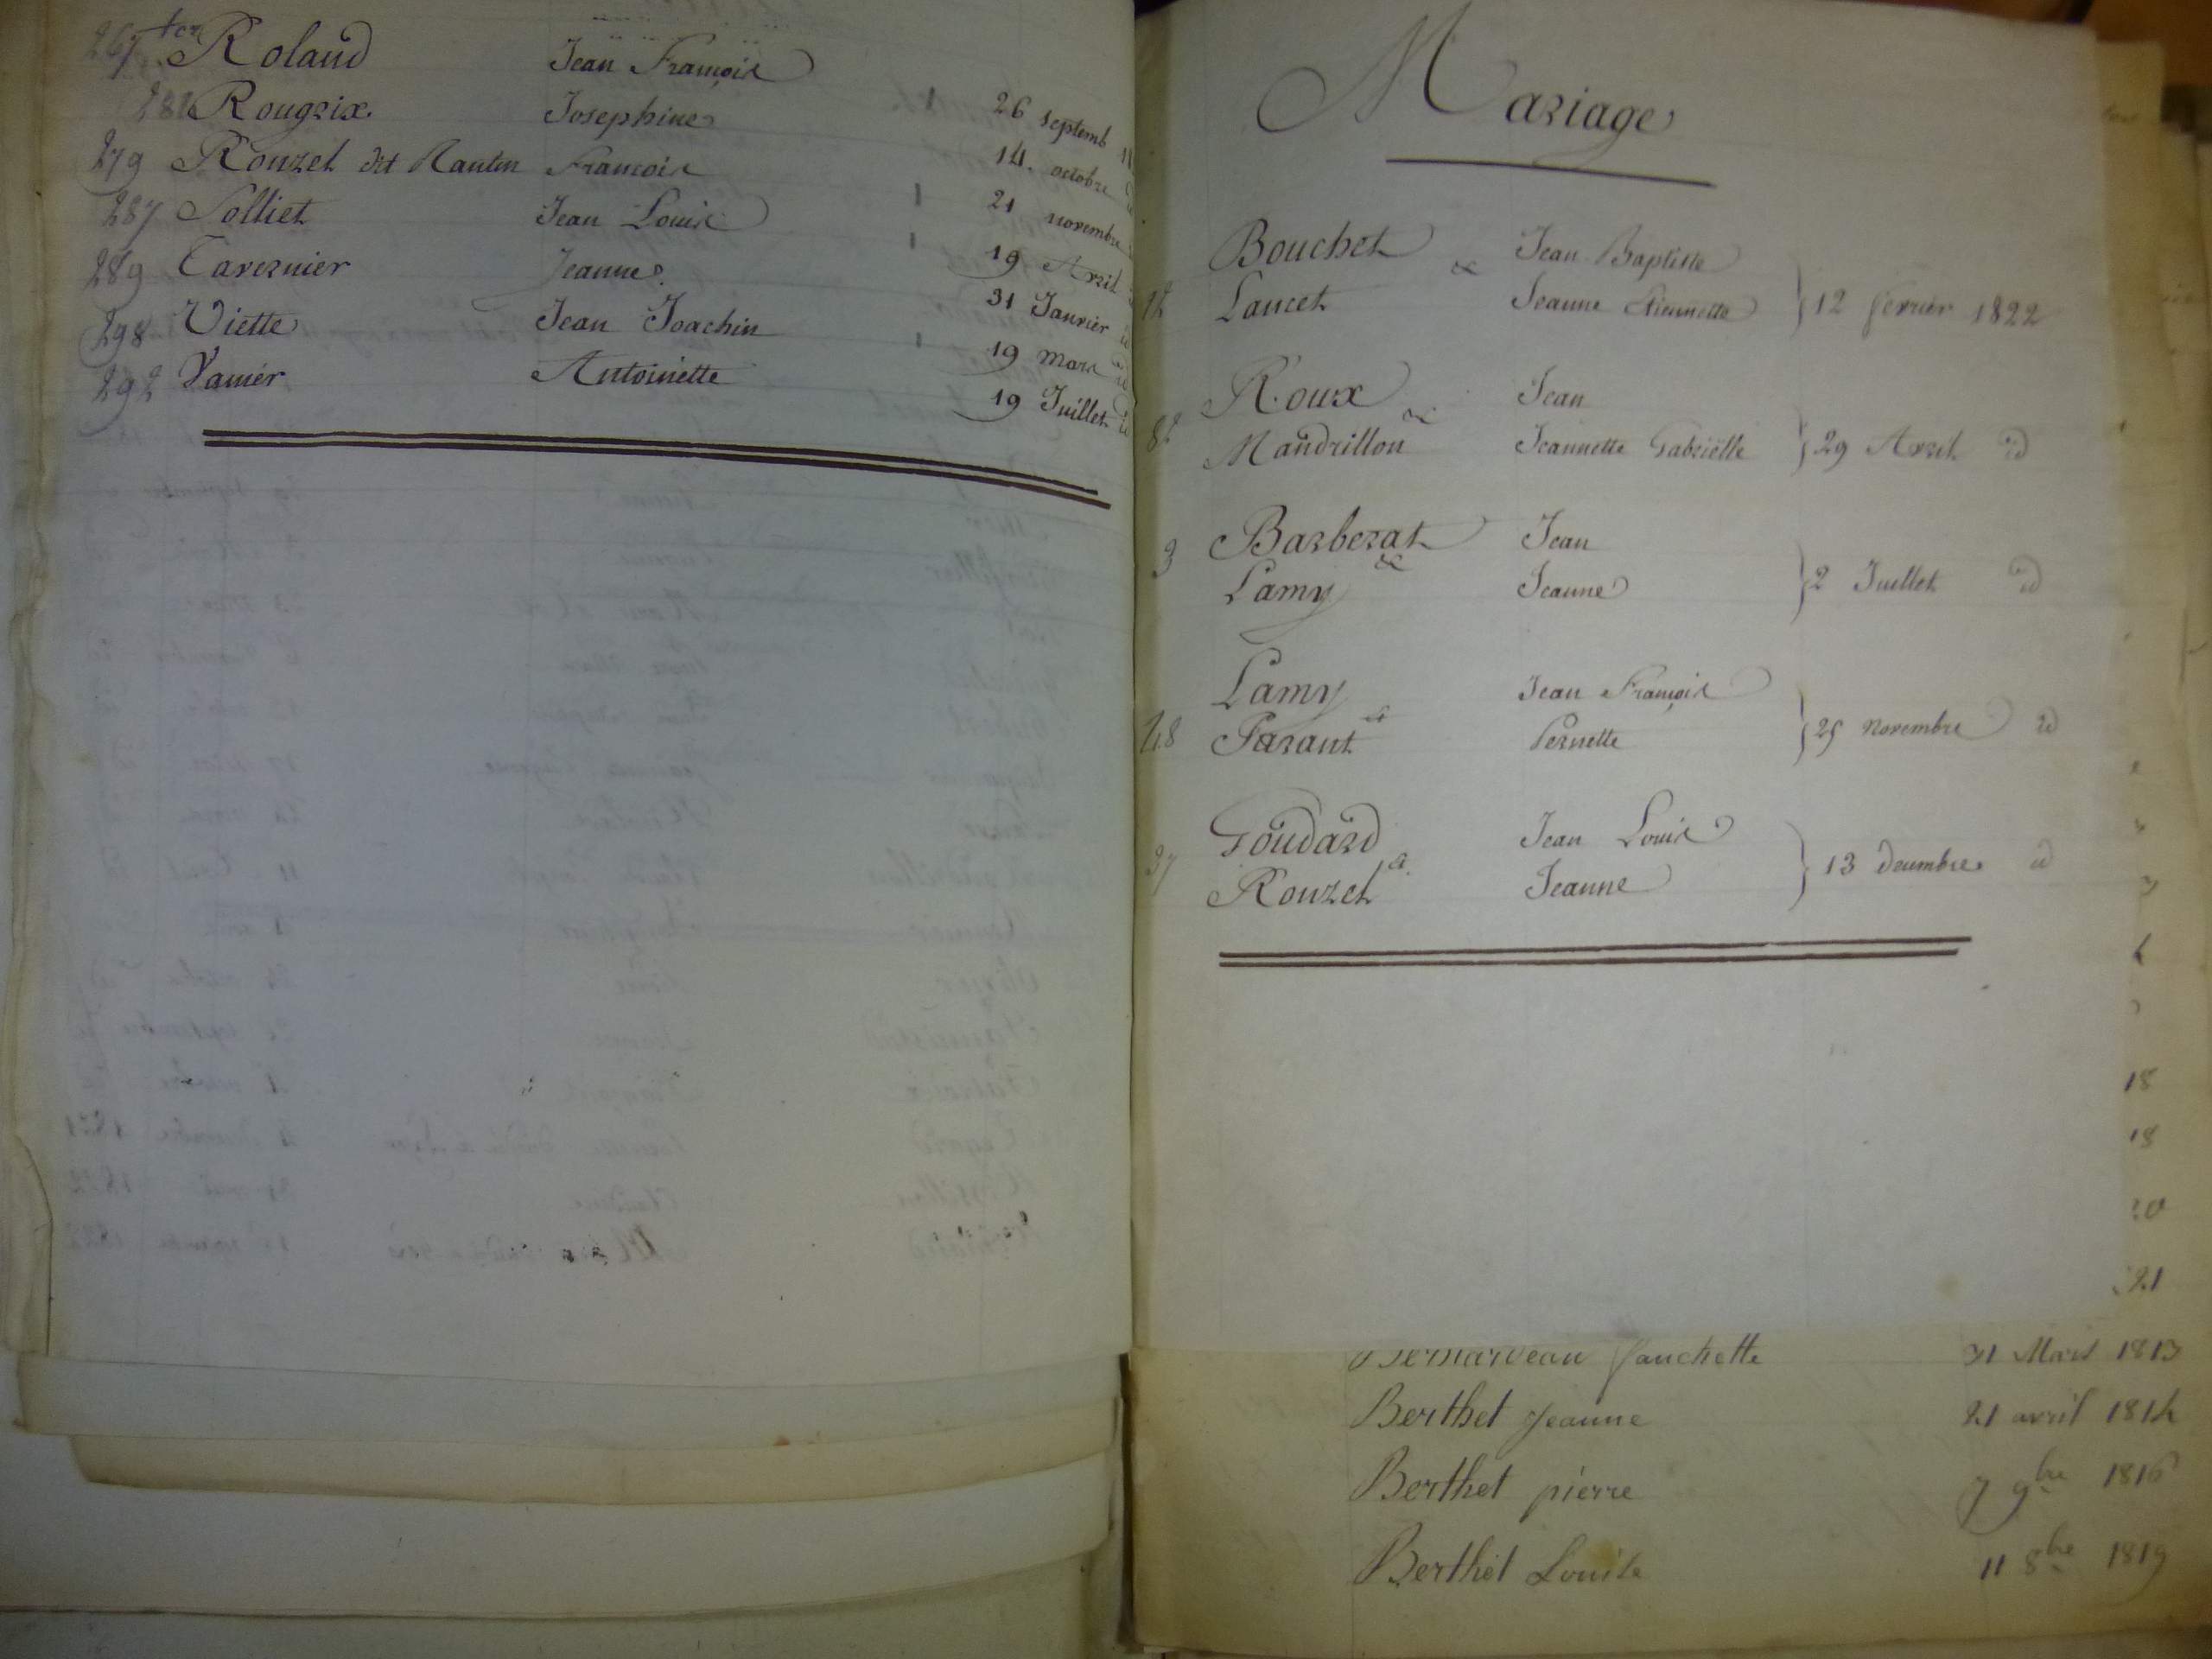 267 ter Roland Jean François 26 Septemb 18
282 Rougeix Josephine 14 octobre
279 Rouzet dit Nantin François 21 novembre
287 Solliet Jean Louis 19 Avril
289 Tavernier Jeanne 31 Janvier
298 Viette Jean Joachin 19 Mars
292 Vanier Antoinette 19 Juillet
Mariage
Bouchet & Jean Baptiste
12 Lancet Jeanne Etiennette } 12 fevrier 1822
Roux & Jean
82 Mandrillon Jeannette Gabriëlle } 29 Avril id
Barberat & Jean
3 Lamy Jeanne } 2 Juillet id
Lamy & Jean François
48 Parant Pernette } 25 Novembre id
Goudard & Jean Louis
37 Rouzet Jeanne } 13 Decembre id
18
18
20
21
Bernardeau fanchette 31 Mars 1813
Berthet Jeanne 21 avril 1814
Berthet pierre 7 9bre 1816
Berthet Louise 11 8bre 1819